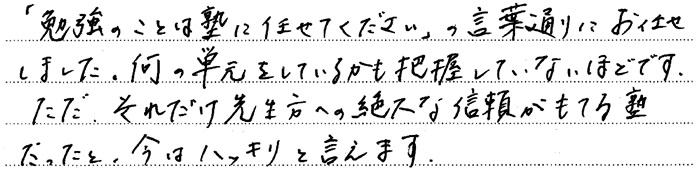 「勉強のことは塾に任せてください」の言葉通りにお任せ
しました。何の単元をしているかも把握していないほどです。
ただ、それだけ先生方への絶大な信頼がもてる塾
だったと、今はハッキリと言えます。